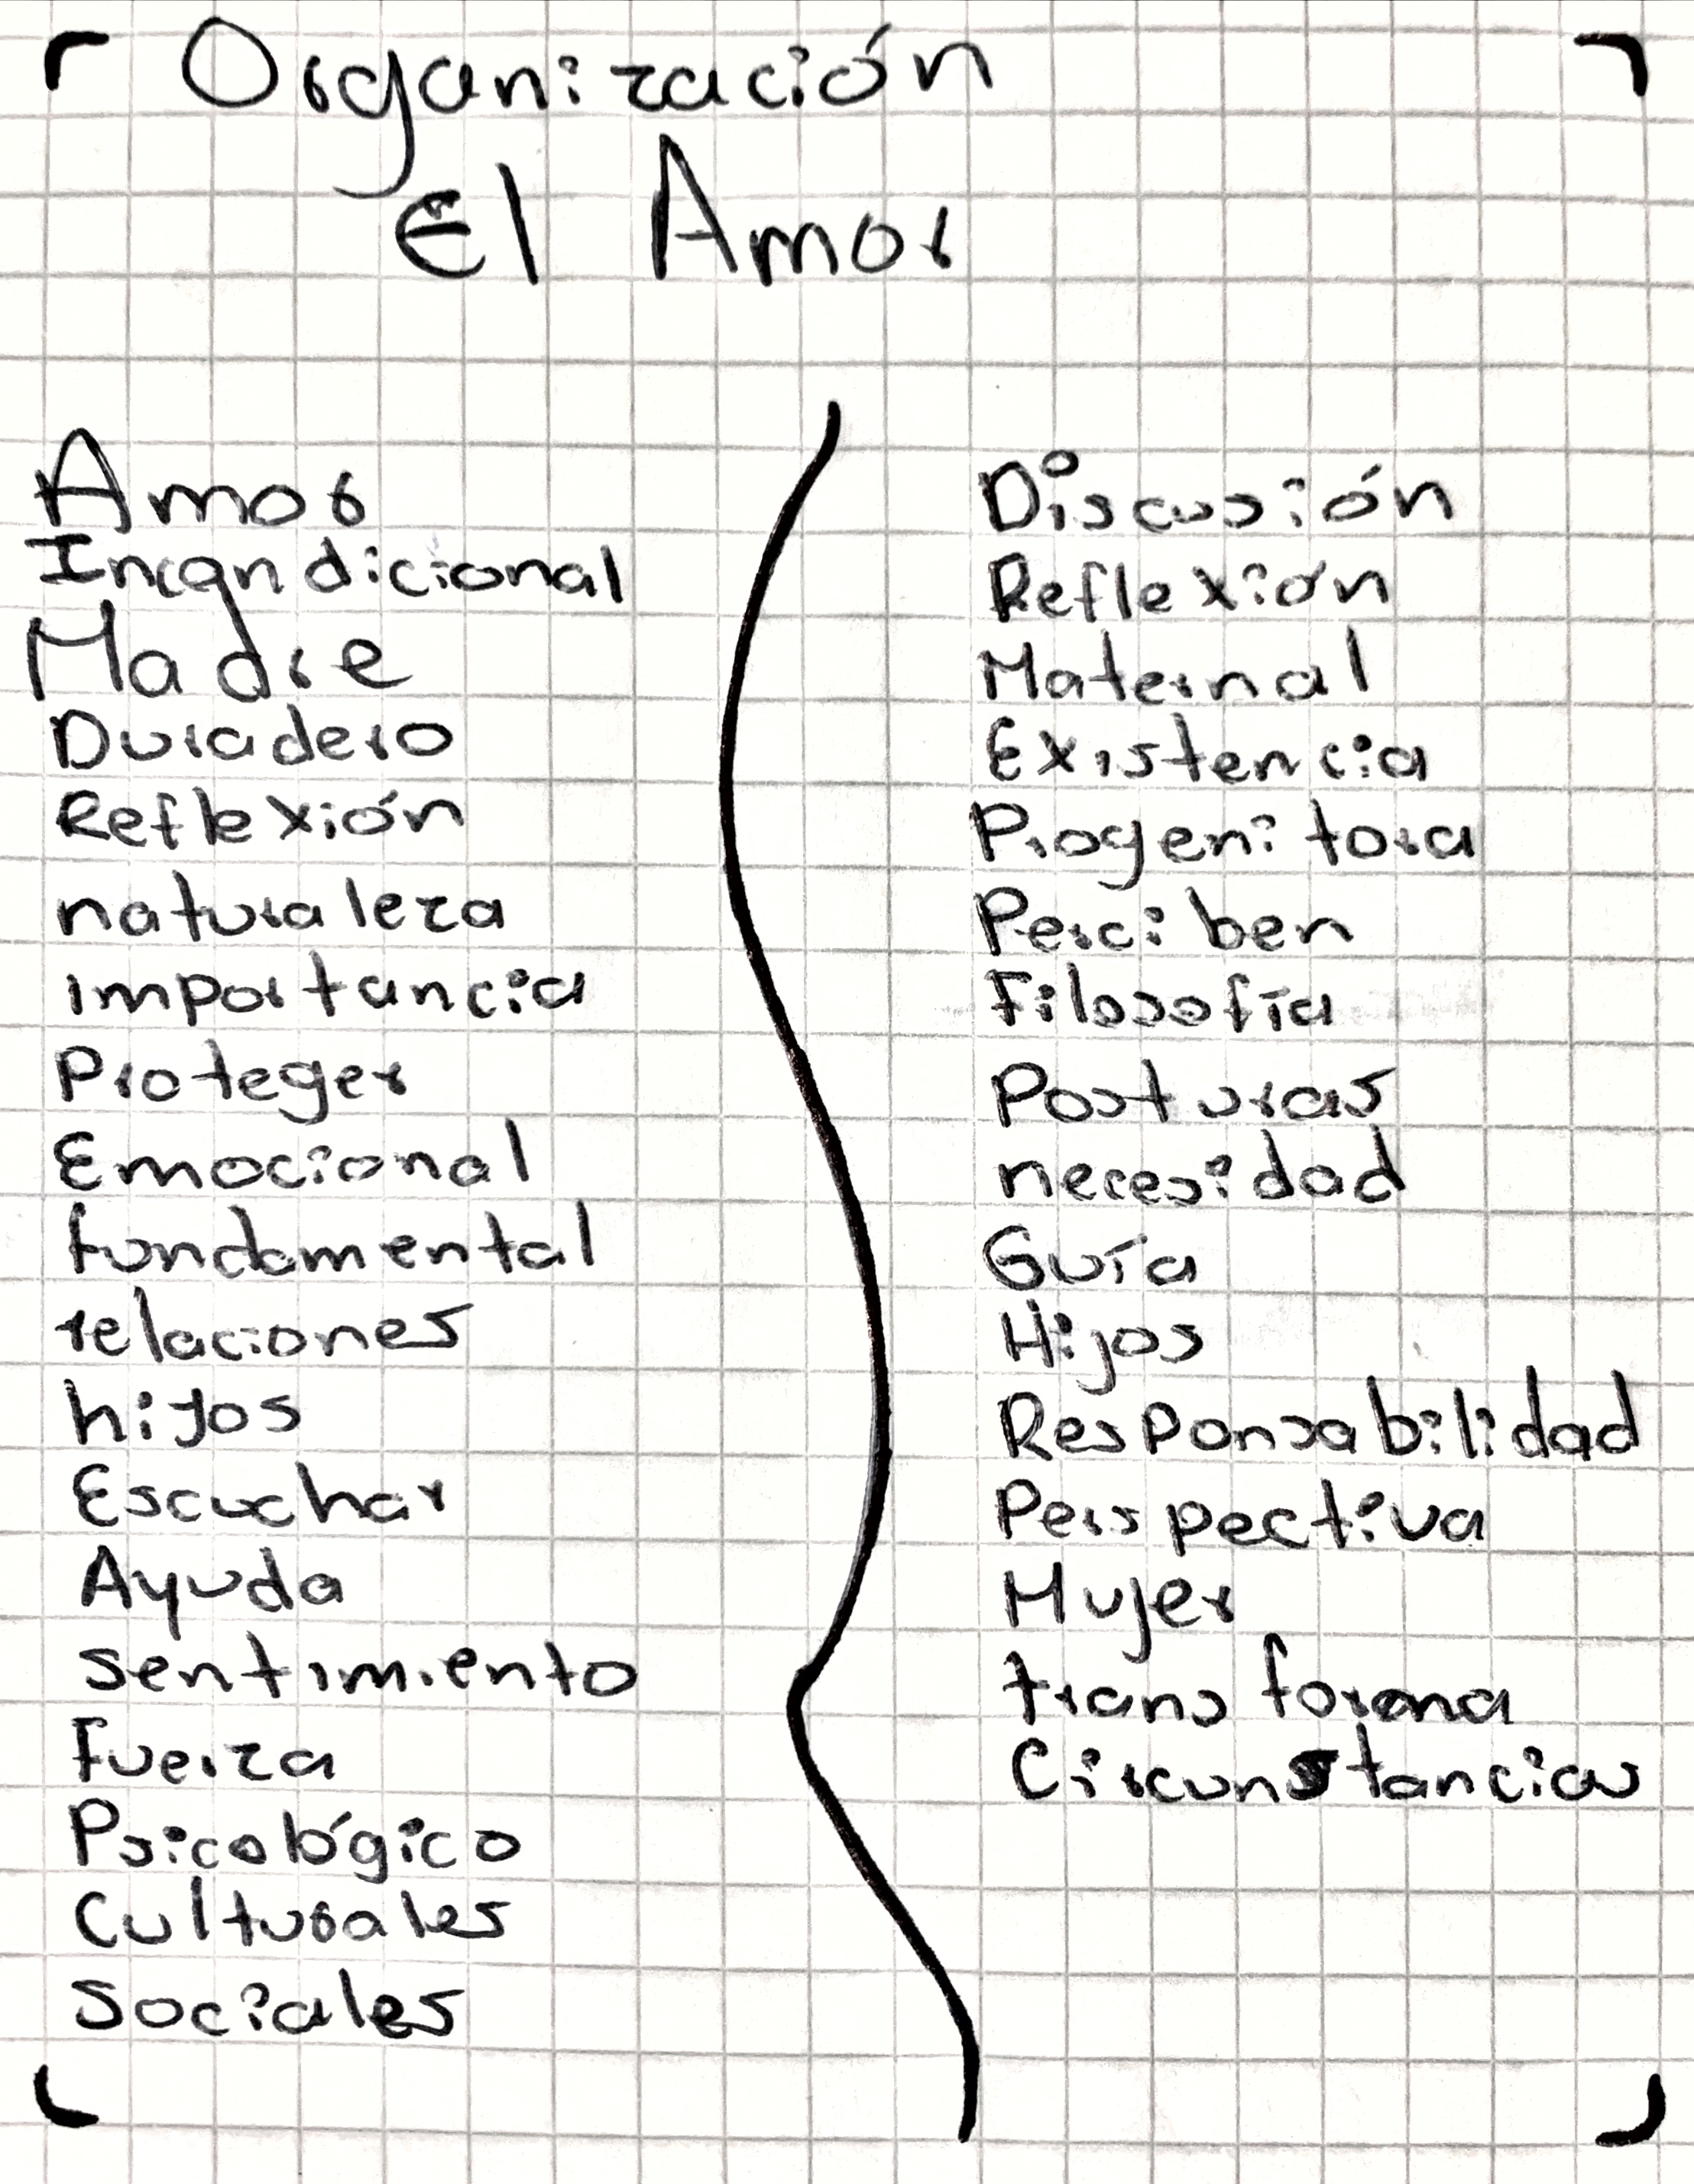 Organización
El Amor
Amor
Incondicional
Madre
Duradero
Reflexión
naturaleza
importancia
Proteger
Emocional
fundamental
relaciones
hijos
Escuchar
Ayuda
sentimiento
Fuerza
Psicológico
Culturales
Sociales
Discusión
Reflexión
Maternal
Existencia
Progenitora
Perciben
Filosofía
Posturas
necesidad
Guía
Hijos
Responsabilidad
Perspectiva
Mujer
transforma
Circunstancias